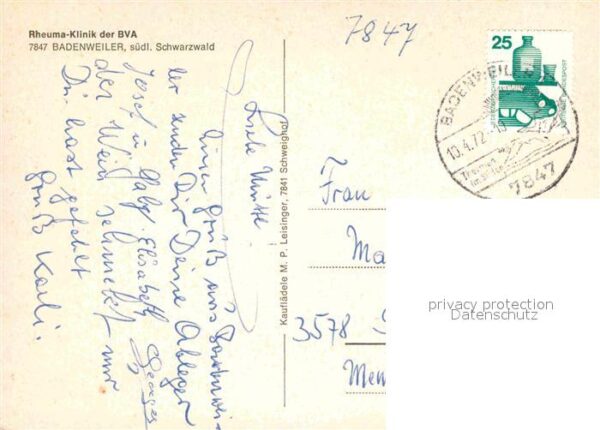 Rheuma-Klinik der BVA
7847 BADENWEILER, südl. Schwarzwald
Liebe Mutti!
Einen Gruß aus Badenwei-
ler senden Dir Deine Ableger
Josef u. Gaby Elisabeth Georges
der Wein schmeckt nur
Du hast gefehlt
Gruß Karli.
Kauflädele M. P. Leisinger, 7841 Schweighof
7847
25
DEUTSCHE BUNDESPOST
BADENWEILER
10.4.72-18
7847
Frau
Ma
3578
Men
privacy protection
Datenschutz